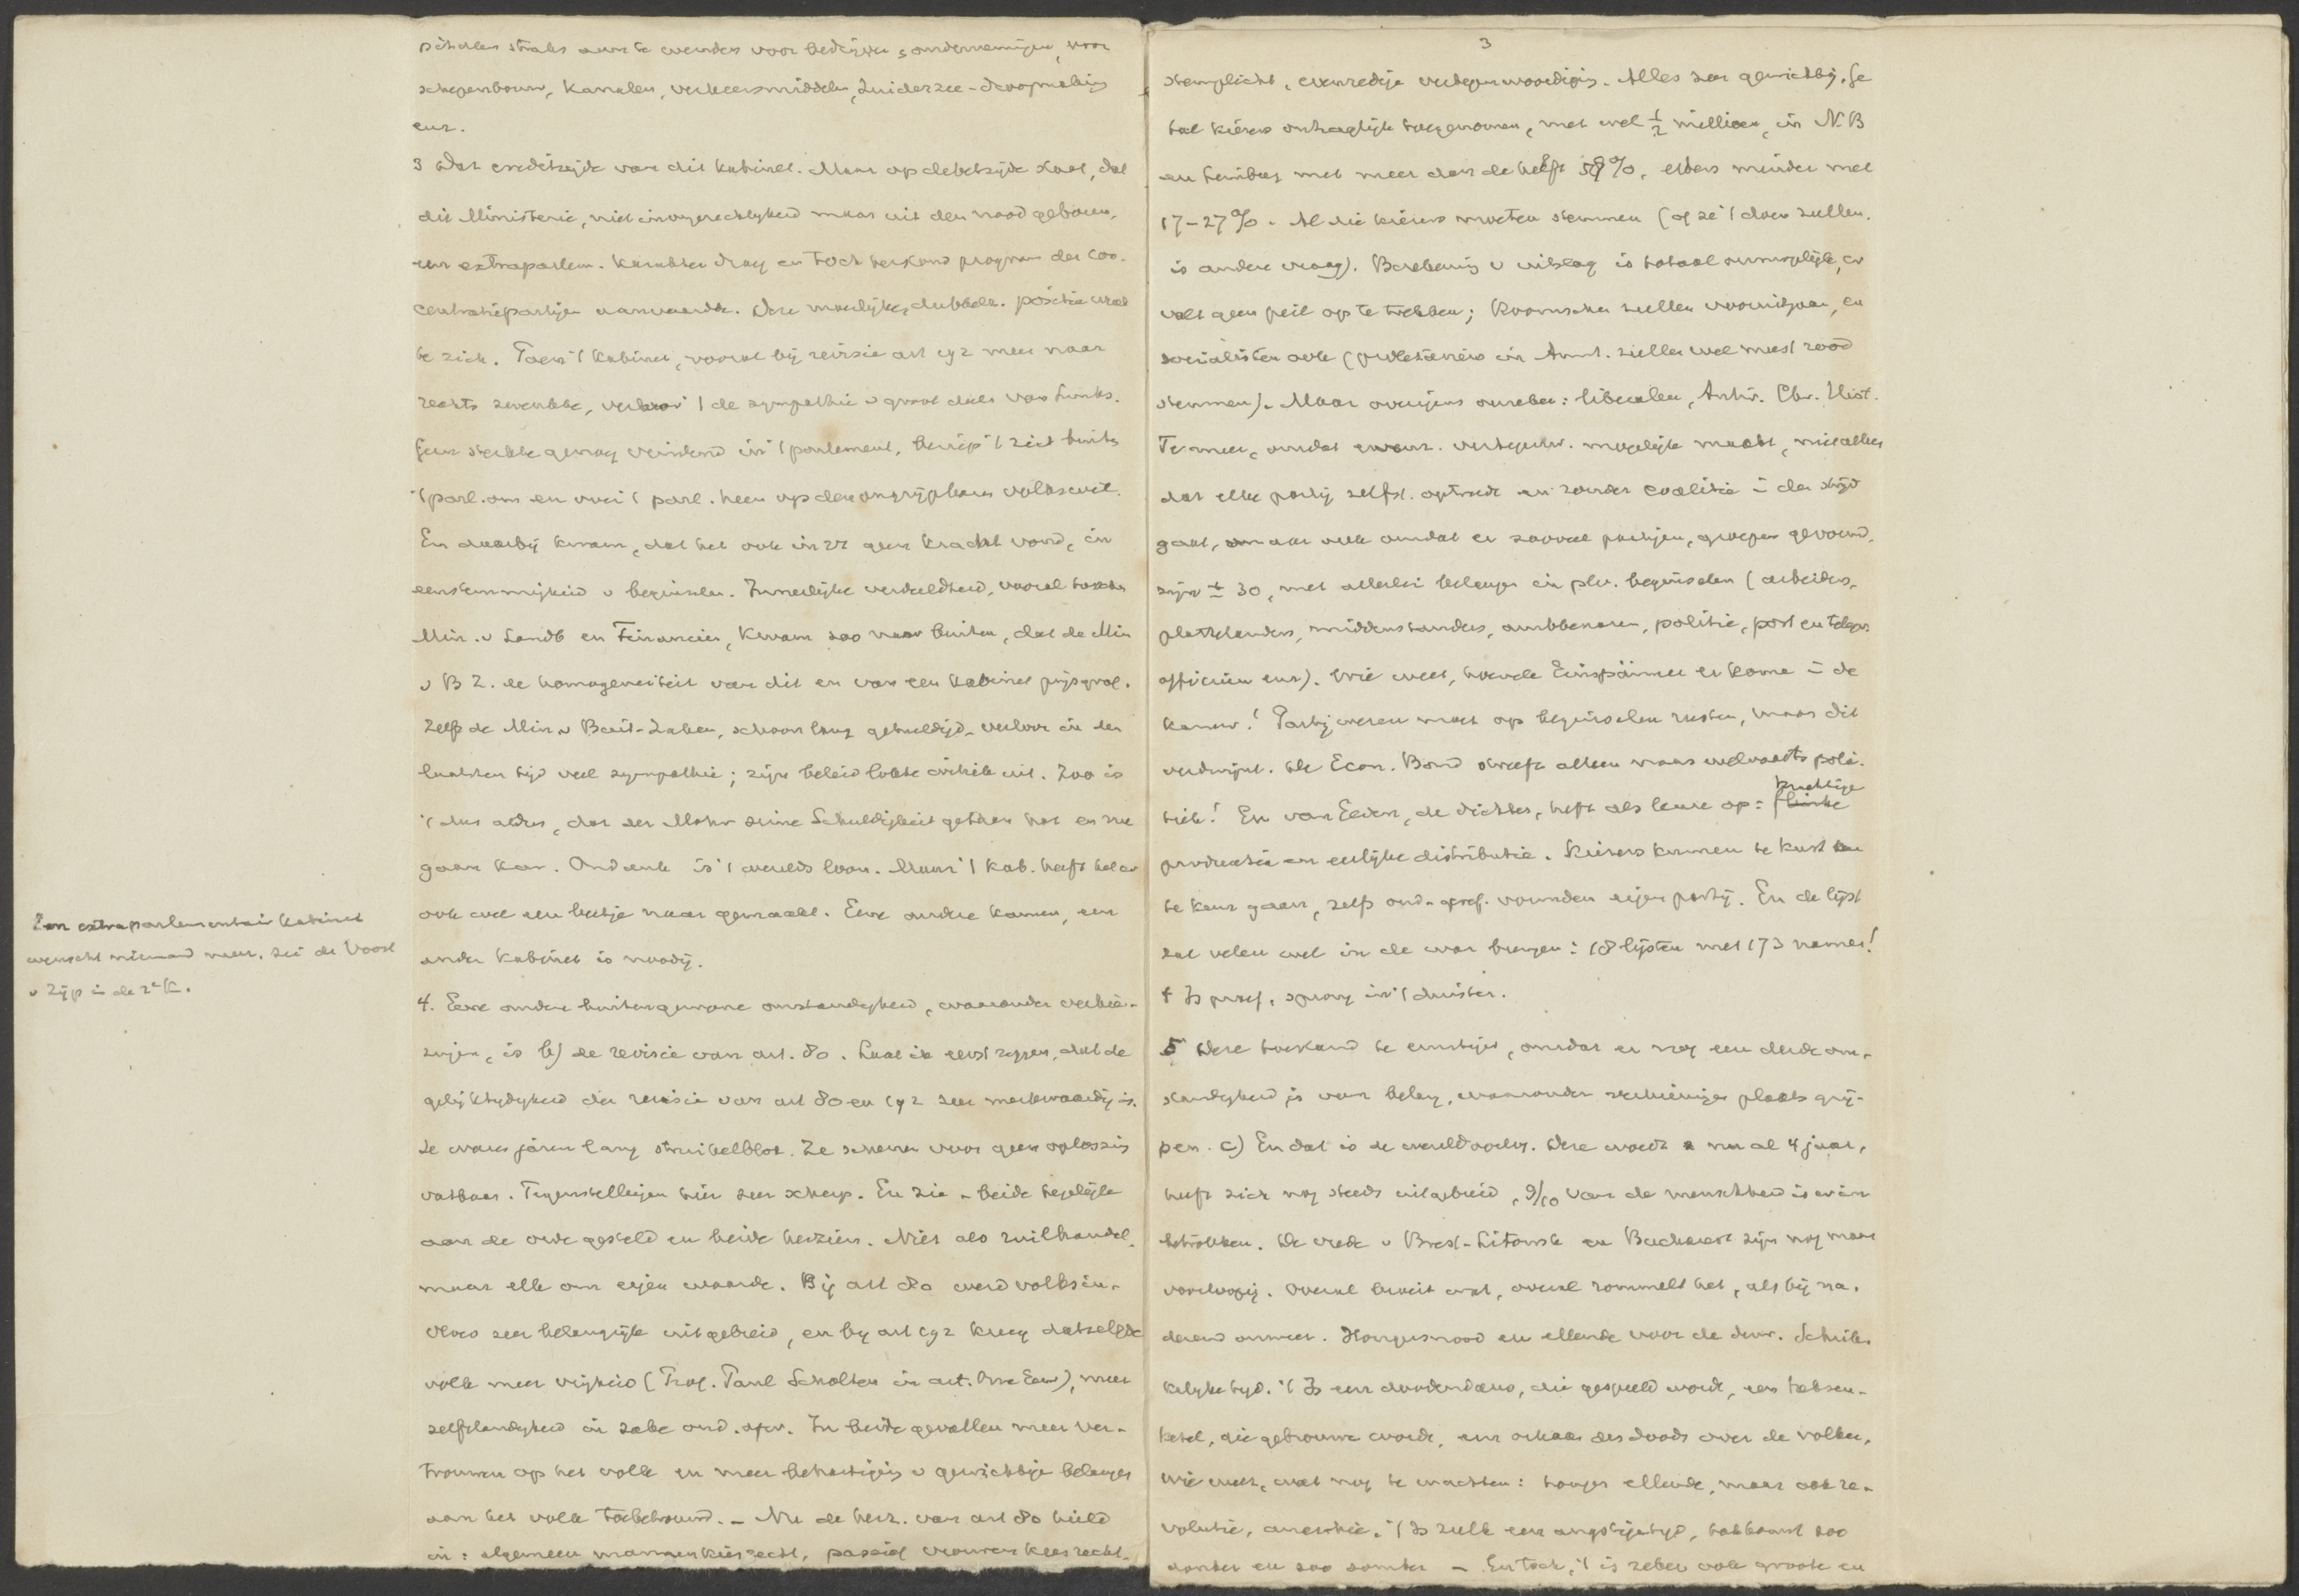 straks aan te wenden voor bedrijven, ondernemingen, voor
scheepsbouw, kanalen, verkeersmiddelen, Zuiderzee-droogmaking
enz.
3 Dat creditzijde van dit kabinet. Maar op debetzijde staat, dat
dit Ministerie, niet in ongerechtigheid maar uit den nood geboren,
een extraparlem. karakter droeg en toch bestaand program der con-
centratiepartijen aanvaardde. Deze moeilijke, dubbele positie wrak
te zich. Toen 't kabinet, vooral bij revisie art 192 meer naar
rechts zwenkte, verloor 't de sympathie v groot deel van Links.
Geen sterkte genoeg vindend in 't parlement, beriep 't zich buiten
't parl. om en over 't parl. heen op den ongrijpbaren volkswil.
En daarbij kwam, dat het ook in zich geen kracht vond, in
eenstemmigheid v beginselen. Innerlijke verdeeldheid, vooral tusschen
Min. v Landb en Financien, kwam zoo naar buiten, dat de Min
v B Z. de homogeniteit van dit en van een kabinet prijsgaf.
Zelfs de Min v Buit-Zaken, schoon lang gehuldigd, verloor in den
laatsten tijd veel sympathie; zijn beleid lokte critiek uit. Zoo is
't dus aldus, dat der Mohr seine Schuldigkeit gethan hat en nu
gaan kan. Ondank is 's werelds loon. Maar 't kab. heeft het er
ook wel een beetje naar gemaakt. Eene andere kamer, een
ander kabinet is noodig.
Een extraparlementair kabinet
wenscht niemand meer, zei de Voorst
v Zijp in de 2e K.
4. Eene andere buitengewone omstandigheid, waaronder verkie-
zingen, is b) de revisie van art. 80. Laat ik eerst zeggen, dat de
gelijktijdigheid der revisie van art 80 en 192 zeer merkwaardig is.
Ze waren jaren lang struikelblok. Ze schenen voor geen oplossing
vatbaar. Tegenstellingen hier zeer scherp. En zie - beide tegelijk
aan de orde gesteld en beide herzien. Niet als ruilhandel,
maar elk om eigen waarde. Bij art 80 werd volksin-
vloed zeer belangrijk uitgebreid, en bij art 192 kreeg datzelfde
volk meer vrijheid (Prof. Paul Scholten in art. Onze Eeuw), meer
zelfstandigheid in zake ond. In beide gevallen meer ver-
trouwen op het volk en meer behartiging v gewichtige belangen
aan het volk toebetrouwd. - Nu de herz. van art 80 hield
in: algemeen mannenkiesrecht, passief vrouwenkiesrecht,
3
stemplicht, evenredige vertegenwoordiging. Alles zeer gewichtig. Ge
tal kiezers ontzaglijk toegenomen, met wel ½ millioen, in N.B
en Limburg met meer dan de helft 58%, elders minder met
17-27%. Al die kiezers moeten stemmen (of ze 't doen zullen,
is andere vraag). Berekening v uitslag is totaal onmogelijk, er
valt geen peil op te trekken; Roomschen zullen vooruitgaan, en
socialisten ook (proletariers in Amst. zullen wel meest rood
stemmen). Maar overigens onzeker: liberalen, Antir. Chr. Hist.
Te meer, omdat evenr. vertegenw. mogelijk maakt, niet alleen
dat elke partij zelfst. optreedt en zonder coalitie i den strijd
gaat, maar ook omdat er zooveel partijen, groepen gevormd,
zijn ± 30, met allerlei belangen in pl.v. beginselen (arbeiders,
plattelanders, middenstanders, ambtenaren, politie, post en telegr.
officieren enz). Wie weet, hoevele Einspänner er komen i de
kamer! Partijwezen moet op beginselen rusten, maar dit
verdwijnt. De Econ. Bond streeft alleen naar welvaarts poli-
tiek! En van Eeden, de dichter, heft als leuze op: flinke krachtige
productie en eerlijke distributie. Kiezers kunnen te kust en
te keur gaan, zelfs ond. vormden eigen partij. En de lijst
zal velen wel in de war brengen: 18 lijsten met 173 namen!
't Is proef, sprong in 't duister.
5 Deze toestand te ernstiger, omdat er nog een derde om-
standigheid is van belang, waaronder verkiezingen plaats grij-
pen. c) En dat is de wereldoorlog. Deze woedt nu al 4 jaar,
heeft zich nog steeds uitgebreid, 9/10 van de menschheid is er in
betrokken. De vrede v Brest-Litowsk en Bucharest zijn nog maar
voorloopig. Overal broeit wat, overal rommelt het, als bij na-
derend onweer. Hongersnood en ellende voor de deur. Schrik-
kelijke tijd. 't Is een doodendans, die gespeeld wordt, een heksen-
ketel, die gebrouwen wordt, een orkaan des doods over de volken,
wie weet, wat nog te wachten: honger ellende, maar ook re-
volutie, anarchie. 't Is zulk een angstige tijd, toekomst zoo
donker en zoo somber - En toch, 't is zeker ook groote en